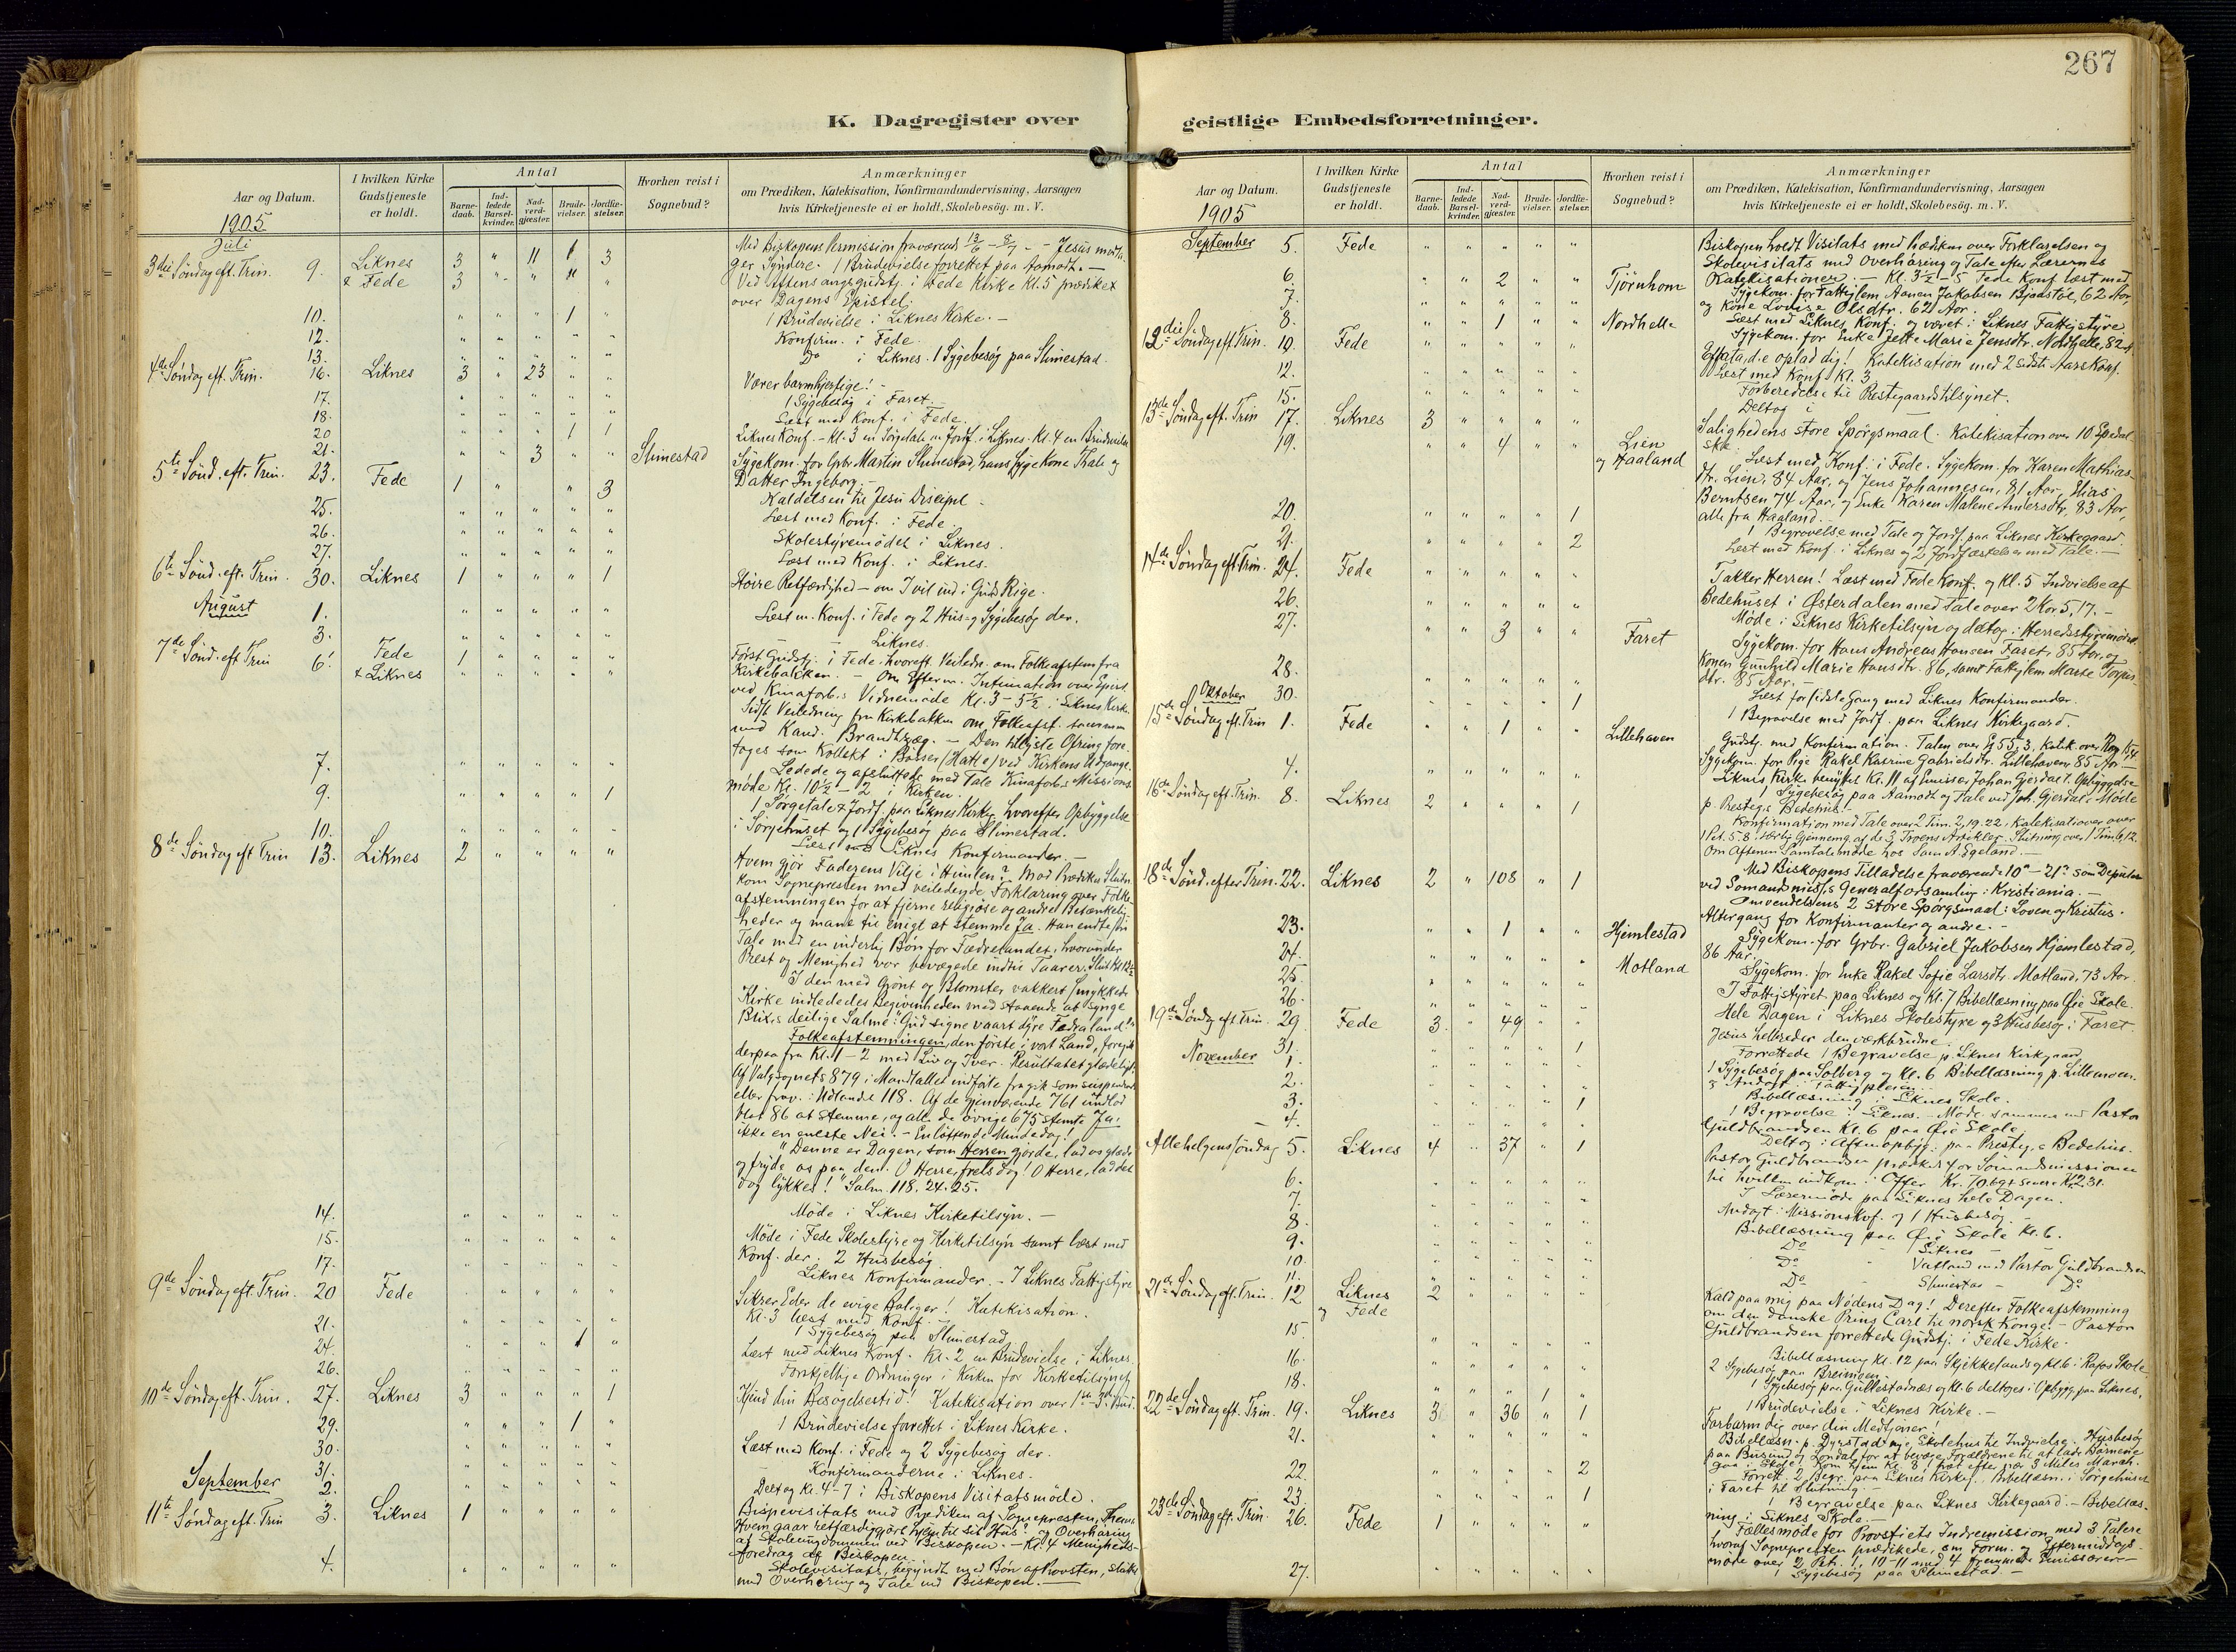 267
K. Dagregister over
geistlige Embedsforretninger.
Aar og Datum.
I hvilken Kirke Gudstjeneste er holdt.
Antal
Barne-daab.
Ind-ledede Barsel-kvinder.
Nad-verd-gjæster.
Brude-vielser.
Jordfæ-stelser.
Hvorhen reist i Sognebud?
Anmærkninger
om Prædiken, Katekisation, Konfirmandundervisning, Aarsagen
hvis Kirketjeneste ei er holdt, Skolebesøg. m. V.
1905
Juli
3die Søndag eft. Trin. 9. Liknes 3 " 11 1 3
& Fede 3 " " " "
Med Biskopens Permission fraværende 13/6 – 8/7 – Jesus modta-
ger Syndere. 1 Brudevielse forrettet paa Aamodt. –
Ved Aftensangsgudstj. i Fede Kirke Kl. 5 prædiket
over Dagens Epistel.
10. " " " 1 " 1 Brudevielse i Liknes Kirke. –
12. " " " " " Konfirm. i Fede.
13. " " " " " Do i Liknes. 1 Sygebesøg paa Slimestad.
4de Søndag eft. Trin. 16. Liknes 3 " 23 " " Værer barmhjertige! –
17. " " " " " 1 Sygebesøg i Faret. –
18. " " " " " Læst med Konf. i Fede.
20 " " " 1 1 Liknes Konf. – Kl. 3 en Sørgetale m Jordf. i Liknes. Kl. 4 en Brudevielse
21. " " 3 " " Slimestad Sygekom. for Grbr. Martin Slimestad, hans syge Kone Thale og
Datter Ingeborg. –
5te Sønd. eft. Trin. 23. Fede 1 " " " 3 Kaldelsen til Jesu Discipel –
25. " " " " " Læst med Konf. i Fede.
26. " " " " " Skolestyremødet i Liknes.
27. " " " " " Læst med Konf. i Liknes.
6te Sønd. eft. Trin. 30. Liknes 1 " " " 1 Høire Retfærdighed – om I vil ind i Guds Rige.
August 1. " " " " " Læst m. Konf. i Fede og 2 Hus- og Sygebesøg der.
3. " " " " " Liknes.
7de Sønd. eft Trin 6. Fede 1 " " " "
& Liknes " " " " "
Først Gudstj. i Fede, hvoreft. Veiledn. om Folkeafstem fra
Kirkebakken. – Om Efterm. Intimation over Epist.
ved Kinaforb.s Vidnemøde Kl. 3 – 5½ i Liknes Kirke.
Sidst Veiledning fra Kirkebakken om Folkeafst. sammen
med Kand. Brandtzæg. – Den tillyste Ofring fore-
toges som Kollekt i Bøsser (Hatte) ved Kirkens Udgange.
7. " " " " " Ledede og afsluttede med Tale Kinaforb.s Missions-
møde Kl. 10½ – 2 i Kirken.
9. " " " " 1 1 Sørgetale & Jordf. paa Liknes Kirkeg. hvorefter Opbyggelse
i Sørgehuset og 1 Sygebesøg paa Slimestad.
10. " " " " " Læst med Liknes Konfirmander. –
8de Søndag eft Trin 13. Liknes 2 " " " "
Hvem gjør Faderens Vilje i Himlen? Mod Prædikens Slutn.
kom Sognepresten med veiledende Forklaring over Folke-
afstemningen for at fjerne religiøse og andre Betænkelig-
heder og mane til enigt at stemme Ja. Han endte sin
Tale med en inderlig Bøn for Fædrelandet, hvorunder
Prest og Menighed var bevægede indtil Taarer.
I den med Grønt og Blomster vakkert smykkede
Kirke indlededes Begivenheden med staaende at synge
Blix's deilige Salme: "Gud signe vaart dyre Fedraland".
Folkeafstemningen, den første i vort Land, foregik
derpaa fra Kl. 11 – 2 med Liv og Iver. Resultatet glædeligt.
Af Valgsognets 879 i Mandtallet indførte fragik som suspenderede
eller frav. i Udlandet 118. Af de gjenværende 761 undlod
blot 86 at stemme, og alle de øvrige 675 stemte Ja,
ikke en eneste Nei. – En løftende Mindedag!
"Denne er Dagen, som Herren gjorde, lad os glæde
og fryde os paa den. O Herre, frels dog! O Herre, lad det
dog lykkes!" Salm. 118, 24. 25.
14. " " " " " Møde i Liknes Kirketilsyn. –
15. " " " " " Møde i Fede Skolestyre og Kirketilsyn samt læst med
Konf. der. 2 Husbesøg
17. " " " " " Liknes Konfirmander. – I Liknes Fattigstyre
9de Søndag eft. Trin. 20 Fede " " " " " Sikrer Eder de evige Boliger! Katekisation.
Kl. 3 læst med Konf. –
21. " " " " " 1 Sygebesøg paa Slimestad
24. " " " 1 " Læst med Liknes Konf. Kl. 2 en Brudevielse i Liknes.
26. " " " " " Forskjellige Ordninger i Kirken for Kirketilsynet
10de Søndag eft. Trin. 27. Liknes 3 " " " 1 Kjend din Besøgelsestid! Katekisation over 1ste – 3de Bud.
29. " " " 1 " 1 Brudevielse forrettet i Liknes Kirke.
30. " " " " " Læst med Konf. i Fede og 2 Sygebesøg der.
31. " " " " " Konfirmanderne i Liknes.
September 2. " " " " " Deltog Kl. 4–7 i Biskopens Visitatsmøde.
11te Søndag eft. Trin 3. Liknes 1 " " " "
Bispevisitats med Prædiken af Sognepresten, Thema
Hvem gaar retfærdiggjort hjem til sit Hus? og Overhøring
af Skoleungdommen ved Biskopen. – Kl. 4 Menigheds-
foredrag af Biskopen.
4. " " " " " Skolevisitats, begyndt med Bøn af Provsten, sluttet
med Overhøring og Tale ved Biskopen. –
Aar og Datum.
I hvilken Kirke Gudstjeneste er holdt.
Antal
Barne-daab.
Ind-ledede Barsel-kvinder.
Nad-verd-gjæster.
Brude-vielser.
Jordfæ-stelser.
Hvorhen reist i Sognebud?
Anmærkninger
om Prædiken, Katekisation, Konfirmandundervisning, Aarsagen
hvis Kirketjeneste ei er holdt, Skolebesøg. m. V.
1905
September 5. Fede " " " " "
Biskopen holdt Visitats med Prædiken over Forklarelsen og
Skolevisitats med Overhøring og Tale efter Lærernes
Katekisationer. – Kl. 3½ – 5 Fede Konf. læst med
6. " " 2 " " Tjørnhom Sygekom. for Fattiglem Aanen Jakobsen Bjødstøl, 62 Aar,
og Kone Lovise Olsdtr. 62 Aar.
7. " " " " " Læst med Liknes Konf. og været i Liknes Fattigstyre.
8. " " 1 " " Nordhelle Sygekom. for Enke Jette Marie Jensdtr. Nordhelle, 82 A.
12te Søndag eft. Trin. 10. Fede " " " " " Effata, d.e. oplad dig! Katekisation med 2 sidste Aars Konf.
Læst med Konf. Kl. 3
12. " " " " " Forberedelse til Prestegaardstilsynet.
15. " " " " " Deltog i
13de Søndag eft. Trin 17. Liknes 3 " " " " Salighedens store Spørgsmaal. Katekisation over 10 Spedal-
ske.
19. " " 4 " " Lien og Haaland
Læst med Konf. i Fede. Sygekom. for Karen Mathias-
dtr. Lien, 84 Aar, og Jens Johannesen, 81 Aar, Elias
Berntsen 74 Aar, og Enke Karen Malene Andersdtr. 83 Aar,
alle fra Haaland.
20. " " " " 1 1 Begravelse med Tale og Jordf. paa Liknes Kirkegaard
21. " " " " 2 Læst med Konf. i Liknes og 2 Jordfæstelser med Tale. –
14de Søndag eft. Trin. 24. Fede " " " " " Takker Herren! Læst med Fede Konf. og Kl. 5 Indvielse af
Bedehuset i Østerdalen med Tale over 2 Kor 5, 17. –
26. " " " " " Møde i Liknes Kirketilsyn og deltog i Herredsstyremødet
27. " " 3 " " Faret Sygekom. for Hans Andreas Hansen Faret, 85 Aar, og
Konen Gunhild Marie Hansdtr. 86, samt Fattiglem Marte Torjus-
dtr. 85 Aar. –
28. " " " " " Læst for sidste Gang med Liknes Konfirmander.
30. " " " " 1 1 Begravelse med Jordf. paa Liknes Kirkegaard.
Oktober
15de Søndag eft. Trin 1. Fede " " 1 " " Lillehaven
Gudstj. med Konfirmation. Talen over Ez 55, 3,
Sygekom. for Pige Rakel Katrine Gabrielsdtr. Lillehaven 85 Aar –
Liknes Kirke benyttet Kl. 11 af Emissær Johan Gjerdal t. Opbyggelse
4. " " " " " 1 Sygebesøg paa Aamodt og Tale ved Joh. Gjerdals Møde
p. Presteg.s Bedehus. –
16de Søndag eft. Trin. 8. Liknes 2 " " " 1
Konfirmation med Tale over 2 Tim. 2, 19. 22, Katekisation over
1 Pet. 5. 8, særlig Gjennemg. af de 3 Troens Artikler. Slutning over 1 Tim 6, 12.
Om Aftenen Samtalemøde hos Sam. A. Egeland. –
Med Biskopens Tilladelse fraværende 10de – 21de som Deputeret
ved Sømandsmiss.s Generalforsamling i Kristiania. –
18de Sønd. efter Trin. 22. Liknes 2 " 108 " 1
Omvendelsens 2 store Spørgsmaal: Loven og Kristus.
Altergang for Konfirmanter og andre. –
23. " " 1 " " Hjemlestad Sygekom. for Grbr. Gabriel Jakobsen Hjemlestad,
86 Aar.
24. " " " " " Motland Sygekom. for Enke Rakel Sofie Larsdtr Motland, 73 Aar.
25. " " " " " I Fattigstyret paa Liknes og Kl. 7 Bibellæsning paa Øie Skole.
26. " " " " " Hele Dagen i Liknes Skolestyre og 3 Husbesøg i Faret
19de Søndag eft. Trin. 29 Fede 3 " 49 " " Jesus helbreder den værkbrudne.
31. " " " " 1 Forrettede 1 Begravelse p. Liknes Kirkegaard
November 1. " " " " " 1 Sygebesøg paa Solberg og Kl. 6 Bibellæsning p. Lillemoen.
og Andagt i Fattigpleien.
2. " " " " " Bibellæsning i Liknes Skole.
3. " " " " 1 1 Begravelse i Liknes. – Møde sammen med Pastor
Guldbrandsen Kl. 6 paa Øie Skole
4. " " " " " Deltog i Aftenopbygg. paa Presteg.s Bedehus.
Allehelgenssøndag 5. Liknes 4 " 37 " 1
Pastor Guldbrandsen prædiket for Sømandsmissionen
til hvilken indkom i Offer Kr. 70, og senere Kr. 2.31.
6. " " " " " I Læsermøde paa Liknes hele Dagen.
7. " " " " " Andagt i Missionskvf. og 1 Husbesøg –
8. " " " " " Bibellæsning paa Øie Skole Kl. 6.
9. " " " " " Do – Liknes – –
10. " " " " " Do – Vatland med Pastor Guldbrandsen
11. " " " " " Do – Slimestad – Do
21de Søndag eft. Trin. 12 Liknes og Fede 2 " " " "
Kald paa mig paa Nødens Dag! Derefter Folkeafstemning
om den danske Prins Carl til norsk Konge. – Pastor
Guldbrandsen forrettede Gudstj. i Fede Kirke.
15. " " " " " Bibellæsning Kl. 12 paa Skjekkeland og Kl. 6 i Rafos Skole
2 Sygebesøg paa Breimoen.
16. " " " " " 1 Sygebesøg paa Gullestadnæs og Kl. 6 deltoges i Opbygg. paa Liknes.
18. " " " 1 " 1 Brudevielse i Liknes Kirke. –
22de Søndag eft. Trin. 19. Liknes 3 " 36 " 1 Forbarm dig over din Medtjener!
21. " " " " " Bibellæsn. p. Dyrstad nye Skolehus til Indvielse. Husbesøg
paa Busund og Londal for at bevæge Forældrene til at lade Børnene
gaa i Skole. Kom hjem Kl. 8 træt efter nær 3 Miles Marsh.
22. " " " " 2 Forrett. 2 Begr. paa Liknes Kirkeg. Bibellæsn. i Sørgehuset
i Faret til Slutning. –
23. " " " " 1 1 Begravelse paa Liknes Kirkegaard. – Bibellæs-
ning i Liknes Skole. –
23de Søndag eft. Trin. 26. Fede 1 " " " "
Fællesmøde for Provstiets Indremission med 3 Talere
hvoraf Sognepresten prædikede, om Form. og Eftermiddags-
møde over 2 Petr. 1, 10–11 med 4 fremmede Emissærer. –
27. " " " " " 1 Sygebesøg paa Slimestad. –